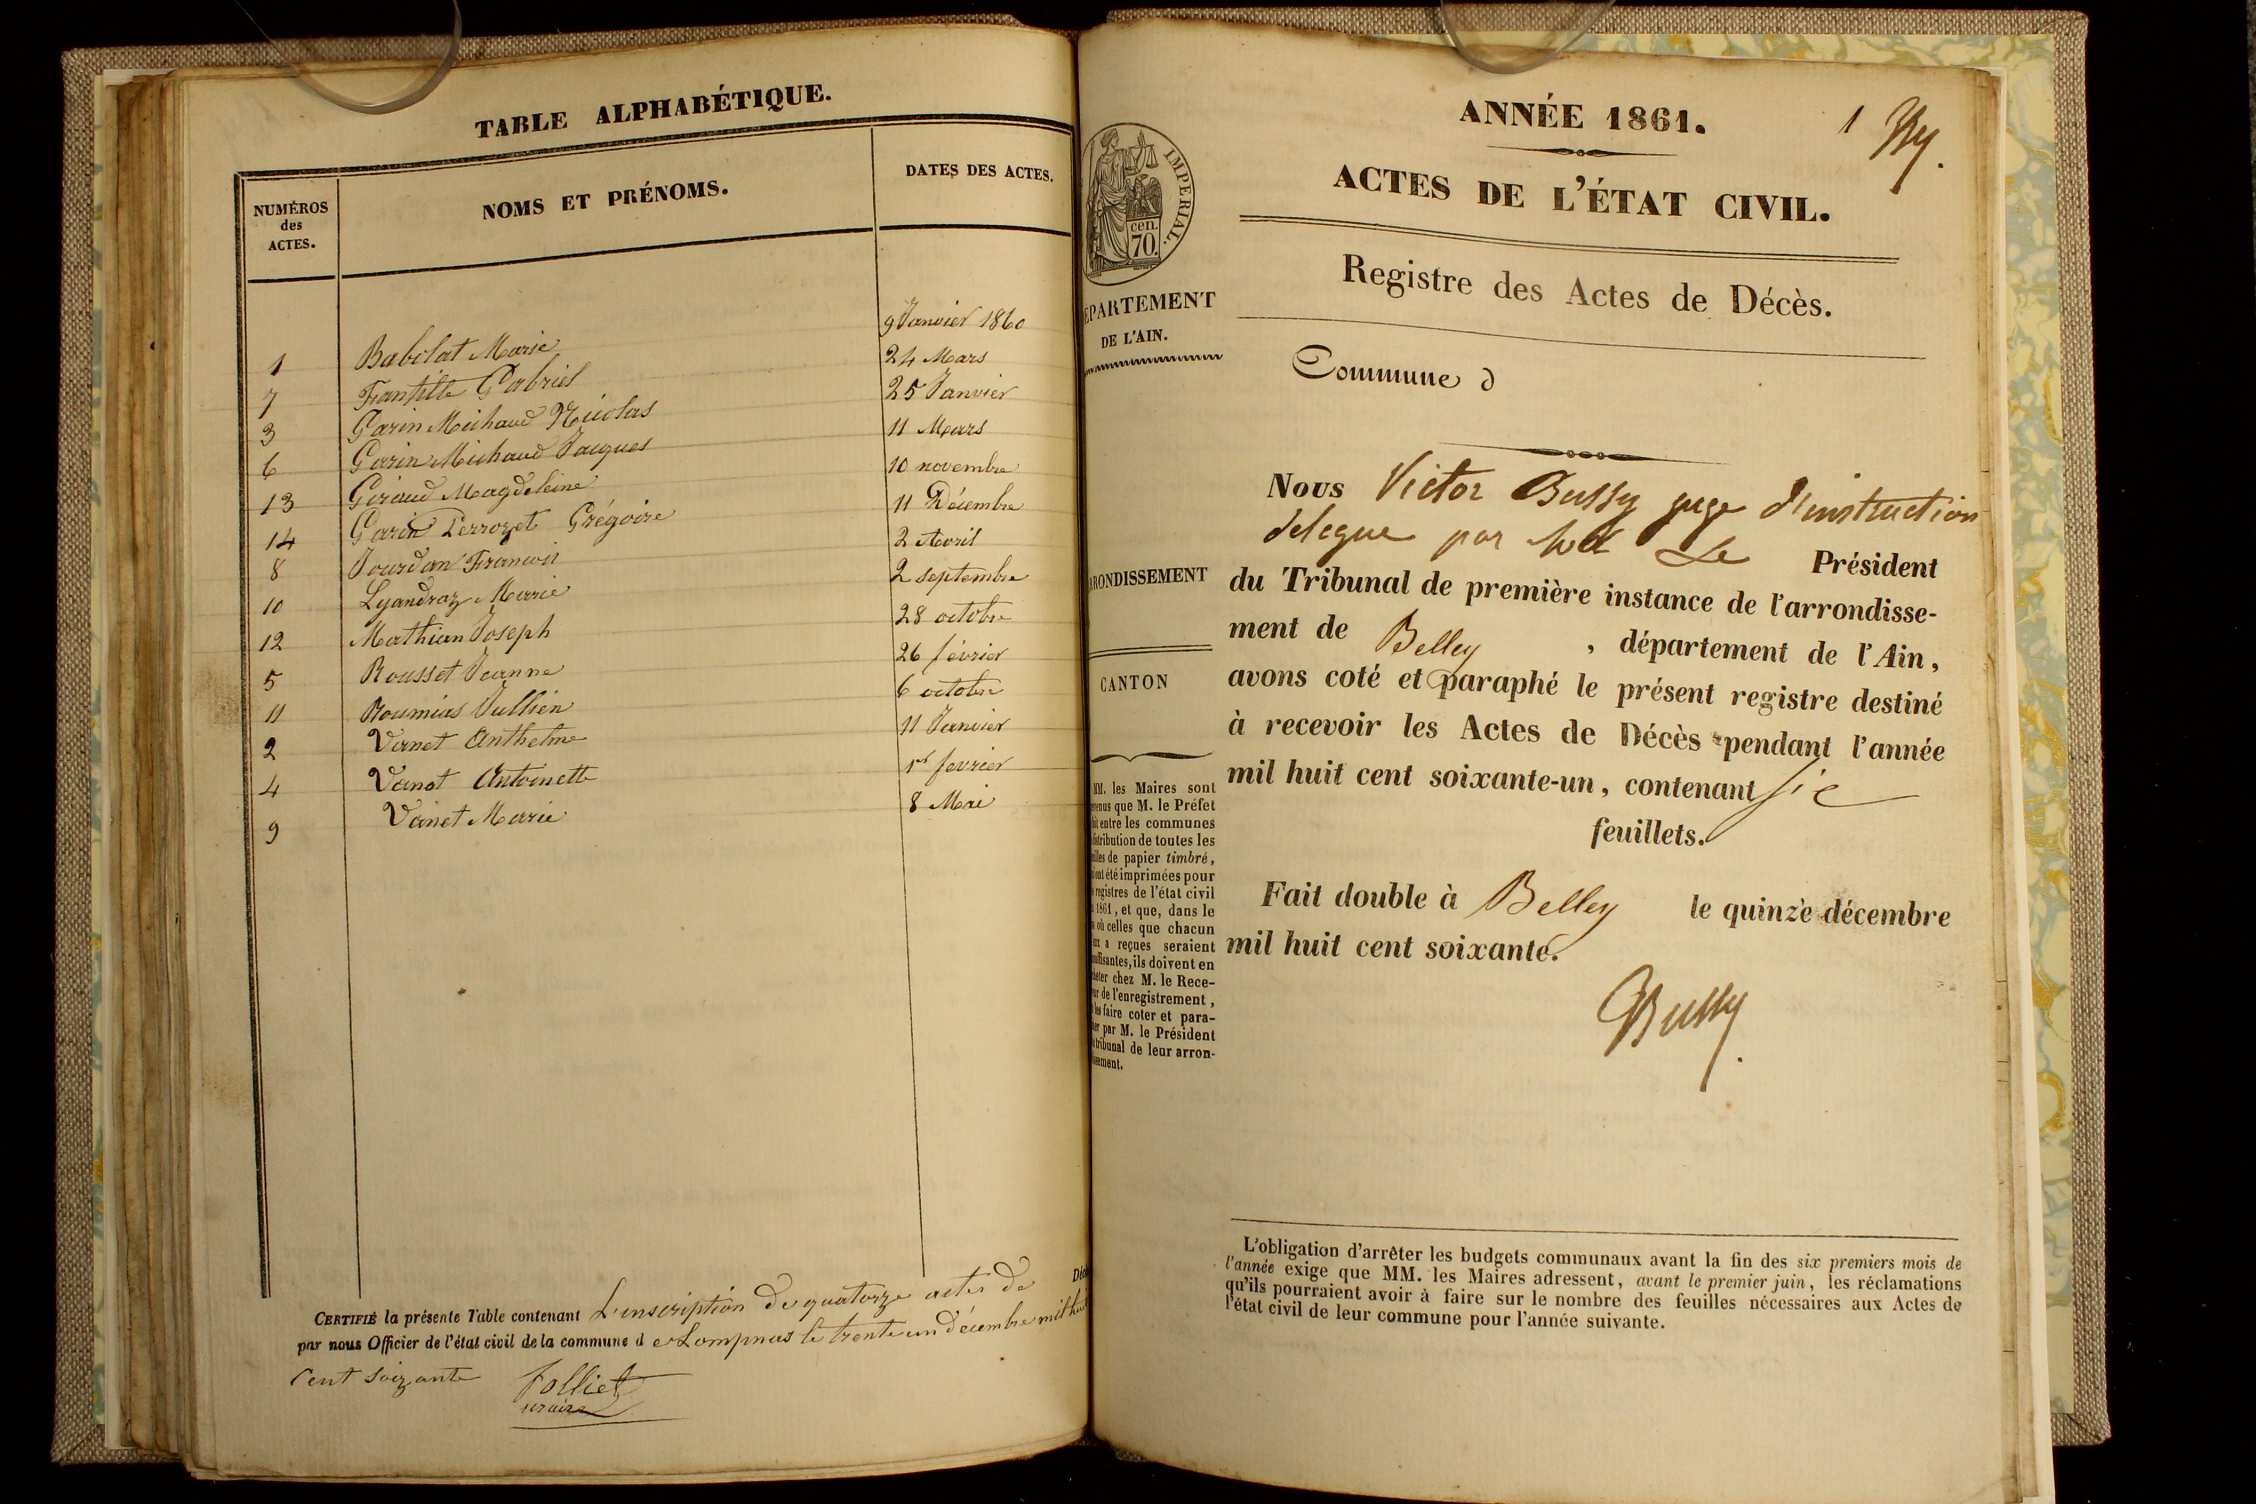 TABLE ALPHABÉTIQUE.
NUMÉROS
des
ACTES.
NOMS ET PRÉNOMS.
DATES DES ACTES.
1 Babolat Marie 9 Janvier 1860
7 Gabriel 24 Mars
3 Garin Michaud Nicolas 25 Janvier
6 Garin Michaud Jacques 11 Mars
13 Giraud Magdeleine 10 novembre
14 Garin Perrozet Grégoire 11 Décembre
8 Jourdan François 2 Avril
10 Lyandraz Marie 2 septembre
12 Mathian Joseph 28 octobre
5 Rousset Jeanne 26 février
11 Roumias Jullien 6 octobre
2 Vanet Anthelme 11 Janvier
4 Vanet Antoinette 1er fevrier
9 Vanet Marie 8 Mai
CERTIFIÉ la présente Table contenant L'inscription de quatorze actes de Déc
par nous Officier de l'état civil de la commune de Lompnas le trente un décembre mil huit
cent soixante
Folliet
maire
1
ANNÉE 1861.
ACTES DE L'ÉTAT CIVIL.
Registre des Actes de Décès.
IMPERIAL.
cen.
70.
EPARTEMENT
DE L'AIN.
Commune d
Nous Victor Bussy juge d'instruction
delegue par Le Président
du Tribunal de première instance de l'arrondisse-
ment de Belley , département de l'Ain,
avons coté et paraphé le présent registre destiné
à recevoir les Actes de Décès pendant l'année
mil huit cent soixante-un, contenant
feuillets.
Fait double à Belley le quinze décembre
mil huit cent soixante.
Bussy
RONDISSEMENT
CANTON
MM. les Maires sont
venus que M. le Préfet
ait entre les communes
distribution de toutes les
illes de papier timbré,
i ont été imprimées pour
registres de l'état civil
1861, et que, dans le
où celles que chacun
eux a reçues seraient
suffisantes, ils doivent en
heter chez M. le Rece-
ur de l'enregistrement,
les faire coter et para-
her par M. le Président
tribunal de leur arron-
issement.
L'obligation d'arrêter les budgets communaux avant la fin des six premiers mois de
l'année exige que MM. les Maires adressent, avant le premier juin, les réclamations
qu'ils pourraient avoir à faire sur le nombre des feuilles nécessaires aux Actes de
l'état civil de leur commune pour l'année suivante.